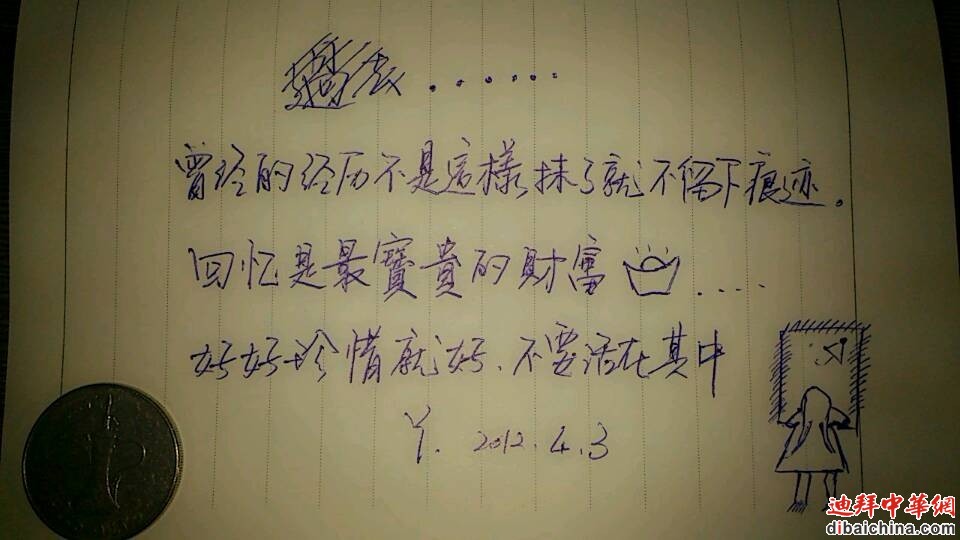 過去.......
曾经的经历不是這樣抹了就不留下痕迹。
回忆是最寶貴的財富....
好好珍惜就好、不要活在其中
丫. 2012.4.3
迪拜中華網
dibaichina.com